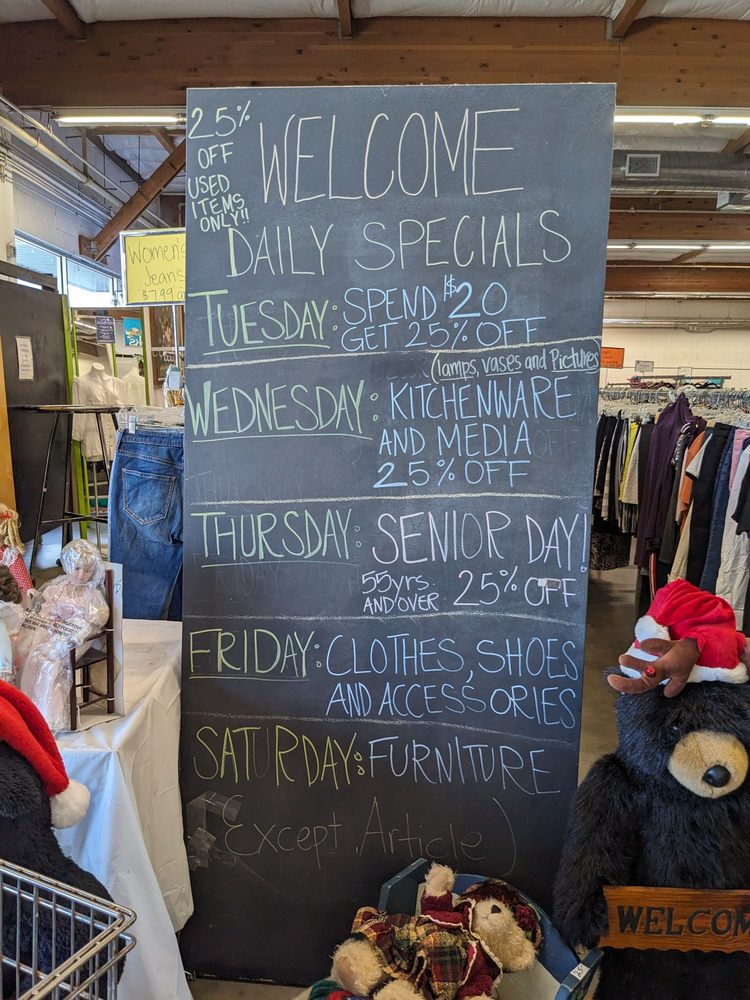 25%
OFF
USED
ITEMS
ONLY!!
WELCOME
DAILY SPECIALS
Women's
Jeans
$7.99
TUESDAY: SPEND $20
GET 25% OFF
(lamps, vases and Pictures
WEDNESDAY: KITCHENWARE
AND MEDIA
25% OFF
THURSDAY: SENIOR DAY!
55yrs. AND OVER 25% OFF
FRIDAY: CLOTHES, SHOES
AND ACCESSORIES
SATURDAY: FURNITURE
(Except Article)
WELCOM